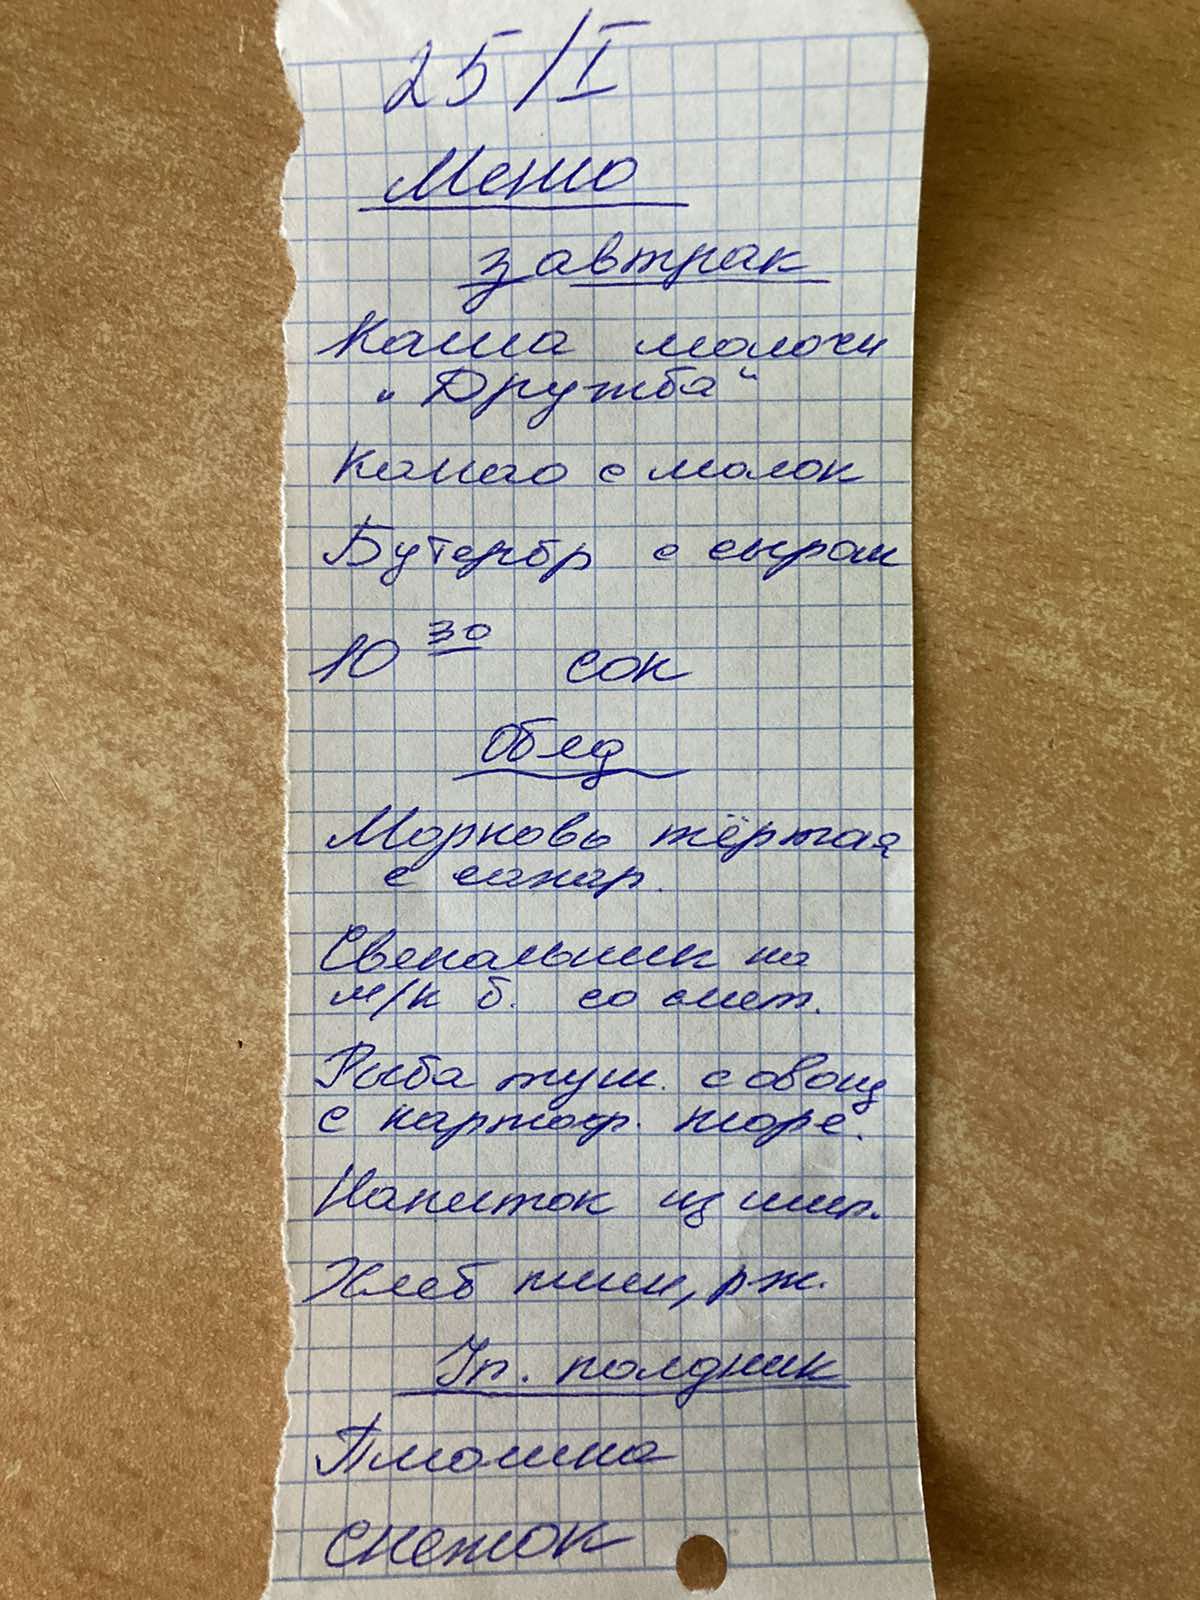 25/I
Меню
завтрак
Каша молочн
"Дружба"
Какао с молок
Бутербр с сыром
10 30 сок
Обед
Морковь тёртая
с сахар.
Свекольник на
м/к б. со смет.
Рыба туш. с овощ
с картоф. пюре.
Напиток из шип.
Хлеб пшен, рж.
Уп. полдник
Плюшка
снежок